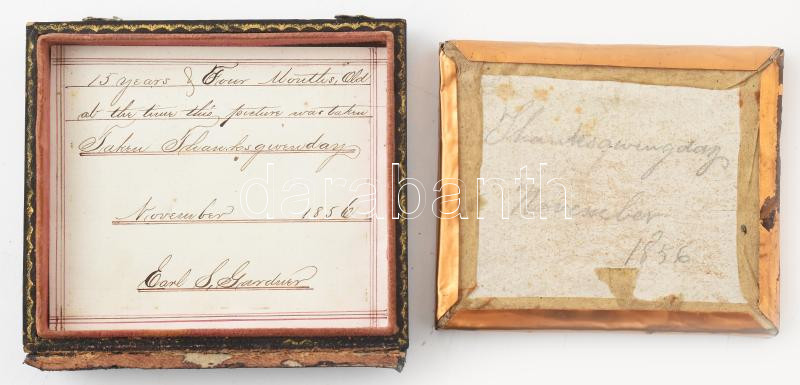 15 years & Four Months, Old
at the time this picture was taken
Taken Thanksgivenday
November 1856
Earl S. Gardner
Thanksgivingday
November
1856
darabanth